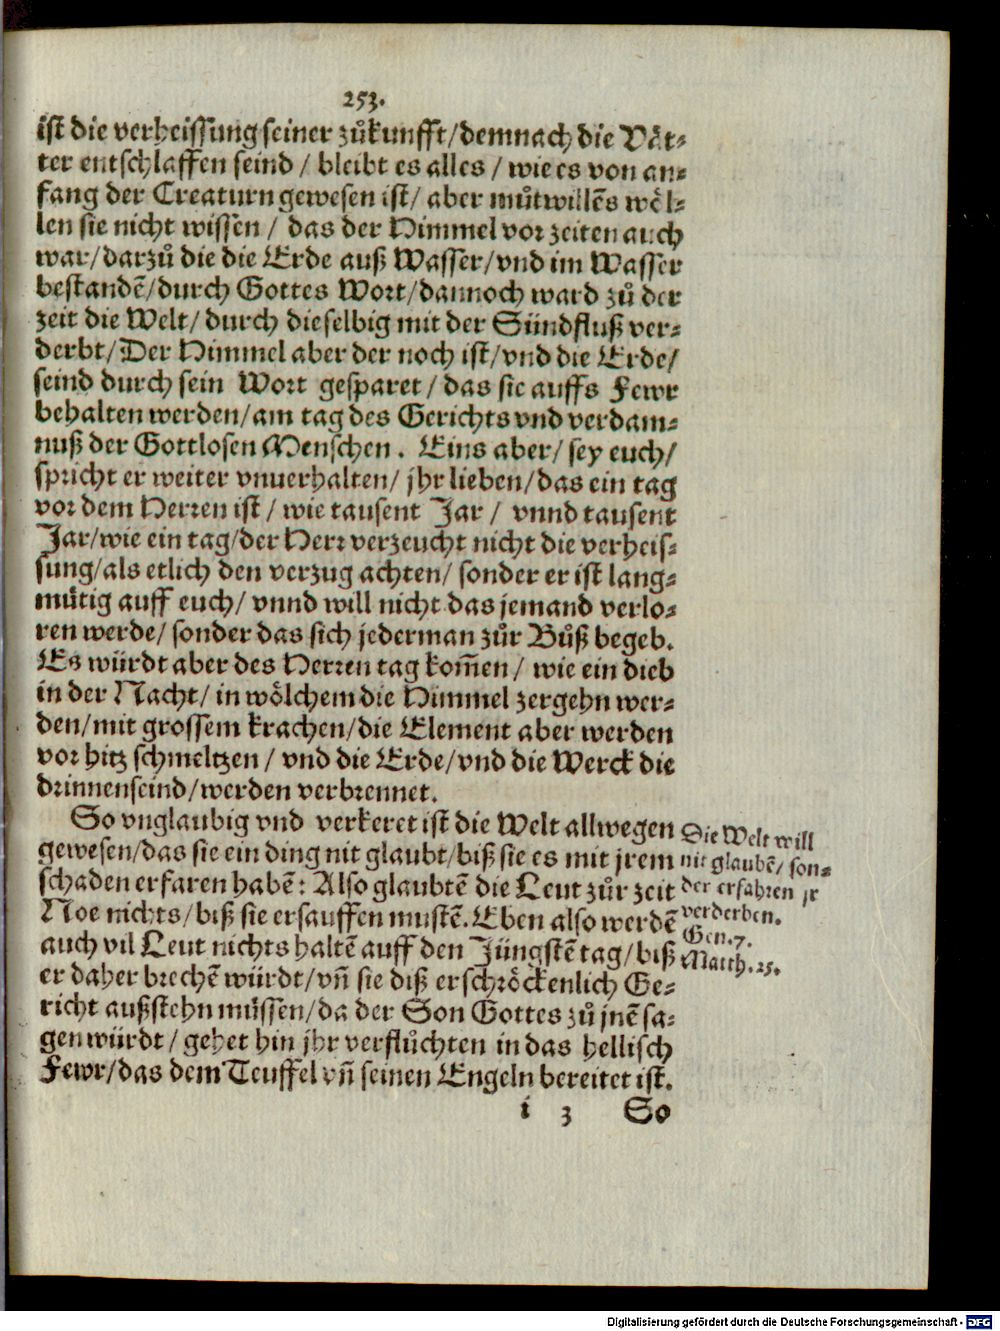 253.
ist die verheissung seiner zůkunfft/demnach die Vöt-
ter entschlaffen seind / bleibt es alles / wie es von an-
fang der Creaturn gewesen ist/ aber můtwillẽs wöl-
len sie nicht wissen / das der Himmel vor zeiten auch
war/darzů die die Erde auß Wasser/vnd im Wasser
bestandẽ/durch Gottes Wort/dannoch ward zů der
zeit die Welt/ durch dieselbig mit der Sündfluß ver-
derbt/Der Himmel aber der noch ist/vnd die Erde/
seind durch sein Wort gesparet / das sie auffs Fewr
behalten werden/am tag des Gerichts vnd verdam-
nuß der Gottlosen Menschen. Eins aber/ sey euch/
spricht er weiter vnuerhalten/ jhr lieben/das ein tag
vor dem Herren ist / wie tausent Jar / vnnd tausent
Jar/wie ein tag/der Herr verzeucht nicht die verheis-
sung/als etlich den verzug achten/ sonder er ist lang-
mütig auff euch/ vnnd will nicht das jemand verlo-
ren werde/ sonder das sich jederman zůr Bůß begeb.
Es würdt aber des Herren tag kom̃en / wie ein dieb
in der Nacht/ in wölchem die Himmel zergehn wer-
den/mit grossem krachen/die Element aber werden
vor hitz schmeltzen / vnd die Erde/vnd die Werck die
drinnenseind/werden verbrennet.
So vnglaubig vnd verkeret ist die Welt allwegen
gewesen/das sie ein ding nit glaubt/biß sie es mit jrem
schaden erfaren habẽ: Also glaubtẽ die Leut zůr zeit
Noe nichts/biß sie ersauffen mustẽ. Eben also werdẽ
auch vil Leut nichts haltẽ auff den Jüngstẽ tag/biß
er daher brechẽ würdt/vñ sie diß erschröckenlich Ge-
richt außstehn müssen/da der Son Gottes zů jnẽ sa-
gen würdt / gehet hin jhr verflůchten in das hellisch
Fewr/das dem Teuffel vñ seinen Engeln bereitet ist.
Die Welt will
nit glaubẽ/ son-
der erfahren jr
verderben.
Gen. 7.
Matth. 25.
i 3 So
Digitalisierung gefördert durch die Deutsche Forschungsgemeinschaft - DFG